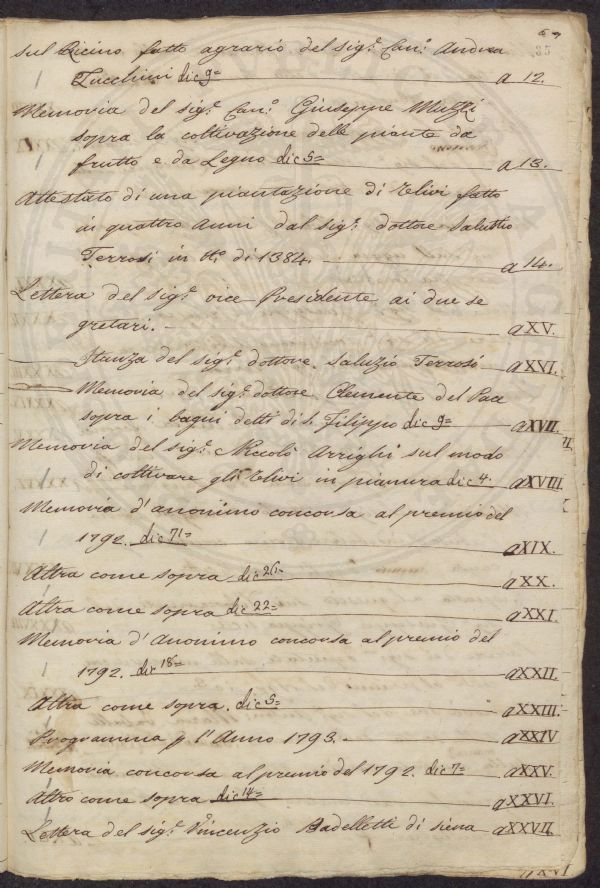 sul Ricino fatto agrario del sig.e Can.o Andrea
Lucchini dic 9= a 12.
Memoria del sig.e Can.o Giuseppe Muzzi
sopra la coltivazione delle piante da
frutto e da Legno dic 5= a 13.
Attestato di una piantazione di Ulivi fatto
in quattro Anni dal sig.e dottore Salustio
Terrosi in N.o di 1384. a 14.
Lettera del Sig.e vice Presidente ai due se
gretari. a XV.
Stanza del sig.e dottore Saluzio Terrosi a XVI.
Memoria del sig.e dottore Clemente del Pace
sopra i bagni detti di S. Filippo dic 9= a XVII.
Memoria del sig.e Niccolò Arrighi sul modo
di coltivare gli Ulivi in pianura dic 4. a XVIII.
Memoria d'anonimo concorsa al premio del
1792. dic 71= a XIX.
Altra come sopra dic 26= a XX.
Altra come sopra dic 22= a XXI.
Memoria d'Anonimo concorsa al premio del
1792. dic 18= a XXII.
Altra come sopra. dic 5= a XXIII.
Programma p l'Anno 1793. a XXIV
Memoria concorsa al premio del 1792. dic 7= a XXV.
Altro come sopra dic 14= a XXVI.
Lettera del sig.e Vincenzio Badelletti di Siena a XXVII.